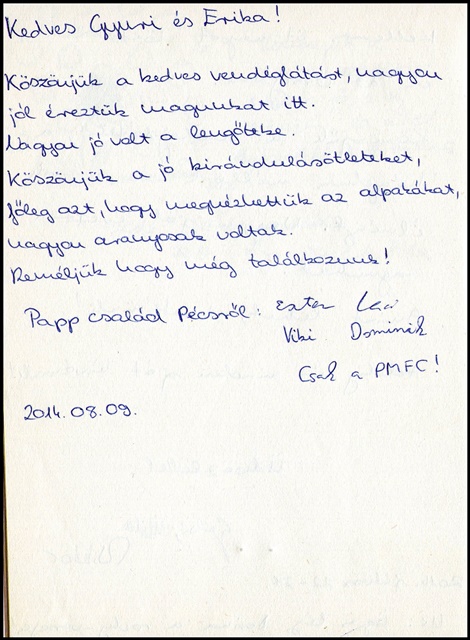 Kedves Gyuri és Erika!
Köszönjük a kedves vendéglátást, nagyon
jól éreztük magunkat itt.
Nagyon jó volt a lengőteke.
Köszönjük a jó kirándulásötleteket,
főleg azt, hogy megnézhettük az alpakákat,
nagyon aranyosak voltak.
Reméljük hogy még találkozunk!
Papp család Pécsről: Eszter Laci
Viki Dominik
Csak a PMFC!
2014.08.09.